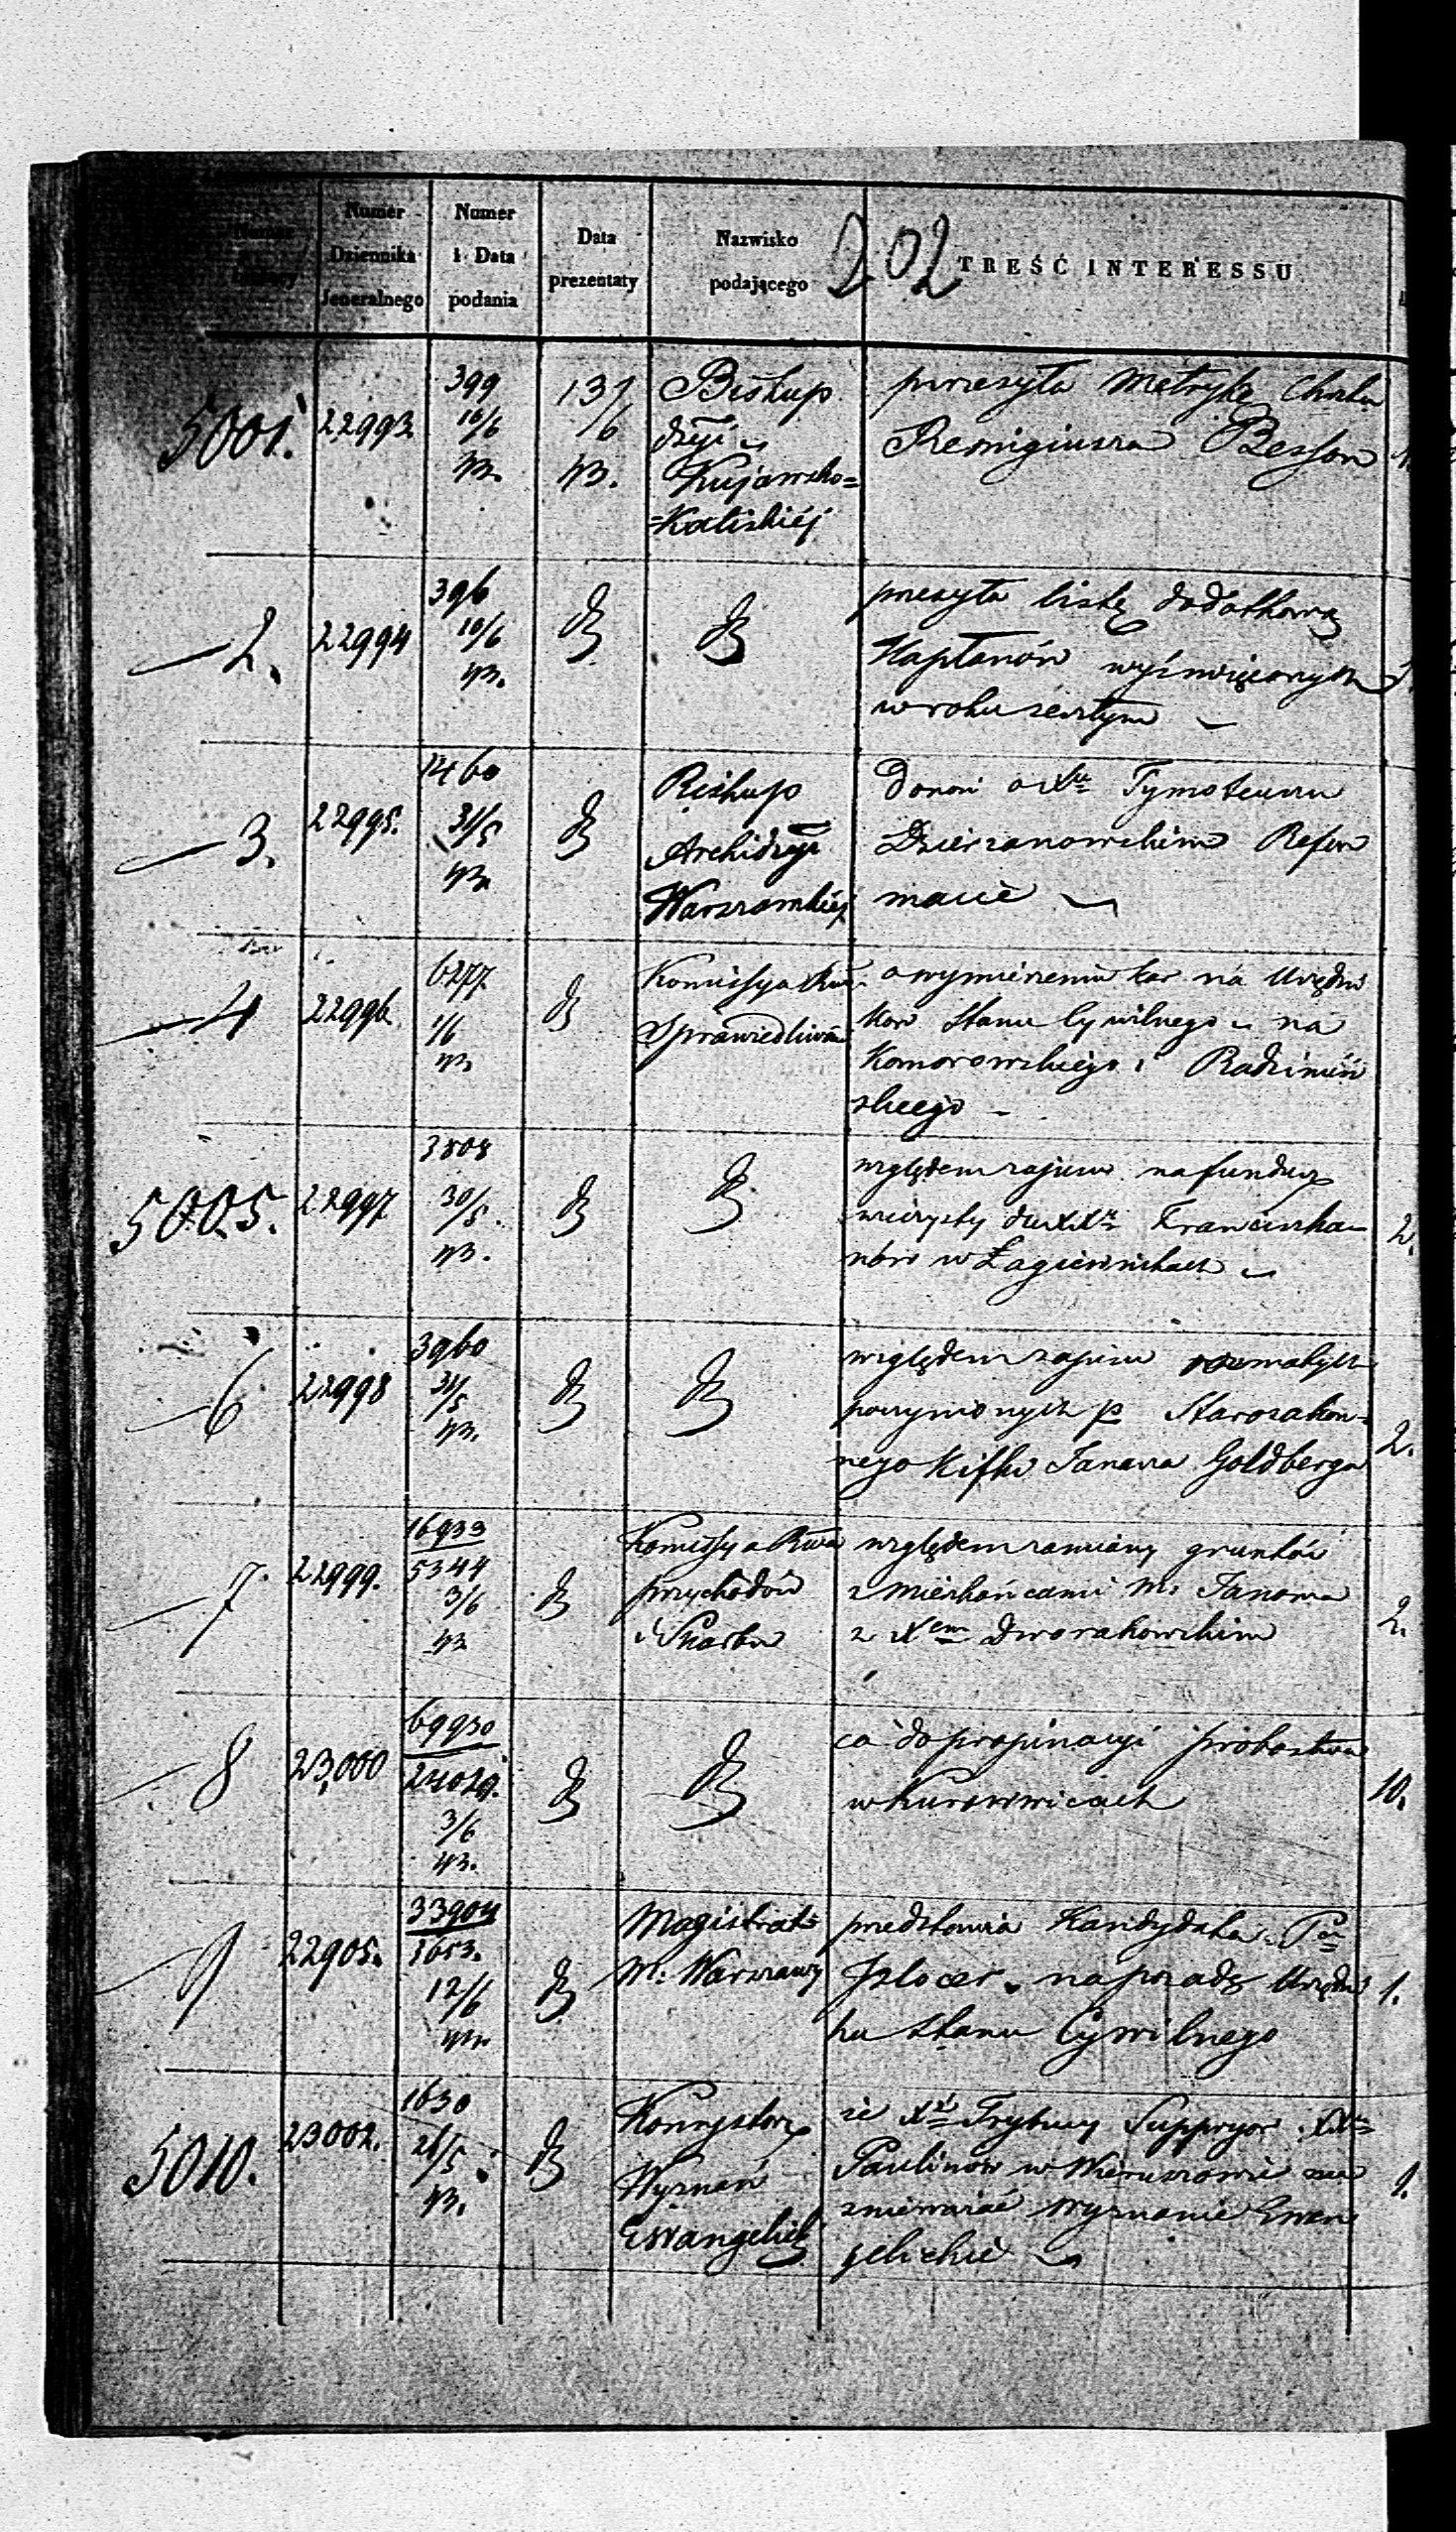 Numer
Numer
Dziennika
Jeneralnego
Numer
i Data
podania
Data
prezentaty
Nazwisko
podającego
202
TREŚĆ INTERESSU
5001.
22993
399
10/6
43.
13/
/6
43.
Biskup
dyi
Kujawsko=
=Kaliskiéj
przesyła Metrykę Chrztu
Remigiusza Besson
2.
22994
396
10/6
43.
przesyła listę dodatkową
Kapłanów wyświęconych
w roku zeszłym
3.
22995.
1460
31/5
43
Biskup
Archidyi
Warszawskiéj
Donosi o Xu Tymoteuszu
Dzierzanowskim Refor
macie
4
22996
6277.
1/6
43
Komissya
Sprawiedliwoś
o wymierzeniu kar na Urzędni
kow Stanu Cywilnego na
Komorowskiego i Radzimiń
skiego
5005.
22997
3808
30/5.
43.
względem zajęcia na fundusz
wieczysty dla XX Franciszka
nów w Łagiewnikach
6
22998
3960
31/5
43.
względem zajęcia
poczynionych p Starozakon=
nego Goldberga
2.
7.
22999.
16933
5344
3/6
43
Komissya Rwa
przychodów
i Skarbu
względem zamiany gruntów
z Mieszkańcami M. Janowa
z Xem Dworakowskim
2.
8
23,000
69930
24029.
3/6
43.
co do propinacyi probostwa
w Kurowicach
10.
9
22905.
33904
1653.
12/6
43.
Magistrat
M. Warszawy
przedstawia Kandydata Pa
na posadę Urzędni
ka Stanu Cywilnego
1.
5010.
23002.
1630
26/5
43.
Konsystorz
Wyznań
Ewangelick
że Xd Suppryor XX
Paulinów w Wieruszowie
znieważać wyznanie Ewan
gelickie
1.